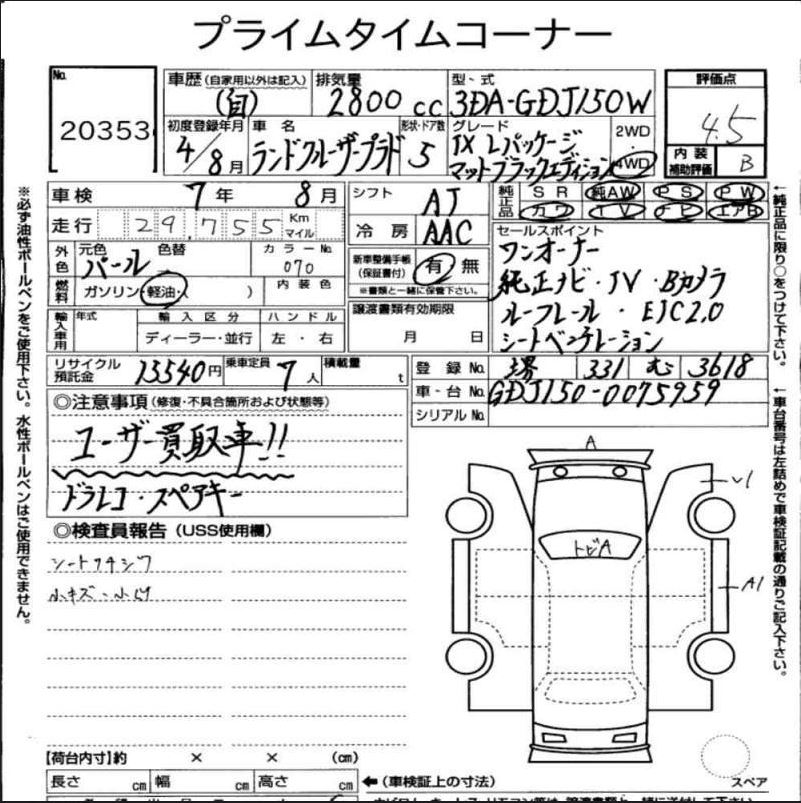 プライムタイムコーナー
No. 20353
車歴 (自家用以外は記入) (自)
排気量 2800 cc
型・式 3DA-GDJ150W
評価点 4.5
初度登録年月 4/8月
車名 ランドクルーザープラド
形状・ドア数 5
グレード TX Lパッケージ マットブラックエディション
2WD 4WD
内装補助評価 B
車検 7年 8月
シフト AT
純正品 SR 純AW PS PW
カワ TV ナビ エアB
走行 29,755 Km マイル
冷房 AAC
セールスポイント
ワンオーナー
純正ナビ・TV・Bカメラ
ルーフレール・ETC2.0
シートベンチレーション
外色 元色 パール 色替 カラーNo. 070
新車整備手帳 (保証書付) 有 無
※書類と一緒に保管下さい。
燃料 ガソリン・軽油・( ) 内装色
譲渡書類有効期限 月 日
輸入車用 年式 輸入区分 ハンドル
ディーラー・並行 左・右
リサイクル預託金 13540円
乗車定員 7人
積載量 t
登録No. 堺 331 む 3618
車・台No. GDJ150-0075959
シリアルNo.
◎注意事項 (修復・不具合箇所および状態等)
ユーザー買取車!!
ドラレコ・スペアキー
◎検査員報告 (USS使用欄)
シートワキシワ
小キズ・小凹
A
トビA
A1
【荷台内寸】約 × × (cm)
長さ cm 幅 cm 高さ cm ←(車検証上の寸法)
スペア
※必ず油性ボールペンをご使用下さい。水性ボールペンはご使用できません。
←純正品に限り○をつけて下さい。
←車台番号は左詰めで車検証記載の通りご記入下さい。